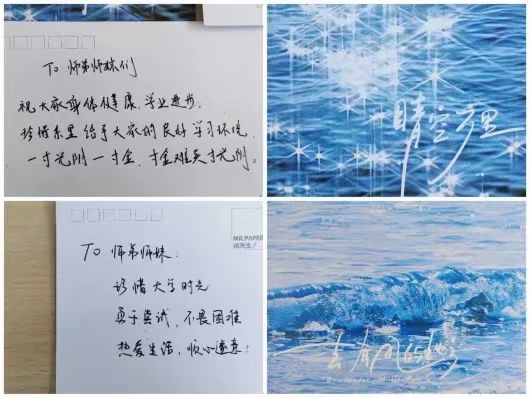 To 师弟师妹们
祝大家身体健康,学业进步,
珍惜系里给予大家的良好学习环境,
一寸光阴一寸金,寸金难买寸光阴。
晴空万里
To 师弟师妹:
珍惜大学时光
勇于尝试,不畏困难
热爱生活,顺心遂意!
MR.PAPER
去有风的地方